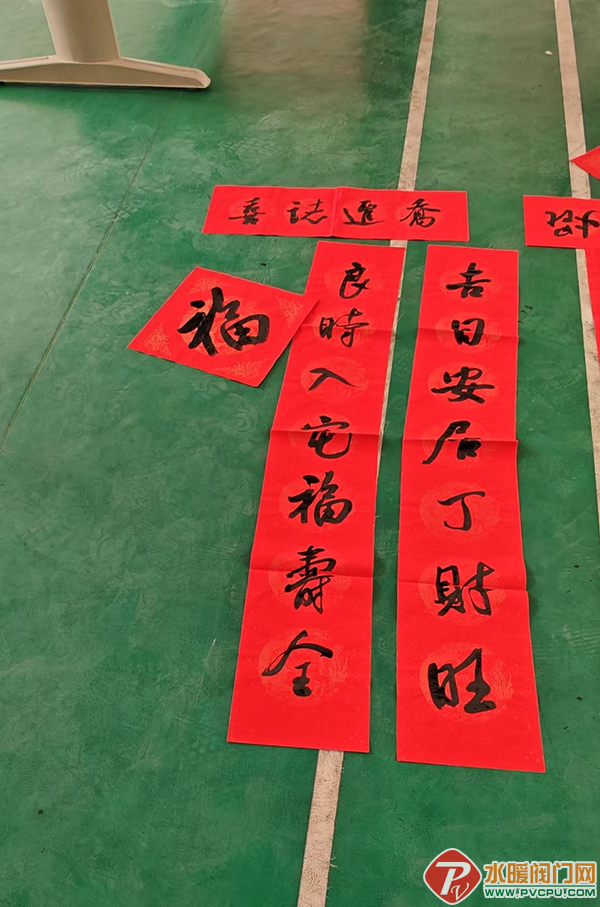 喬遷誌喜
吉日安居丁財旺
良時入宅福壽全
福
水暖阀门网
WWW.PVCPU.COM